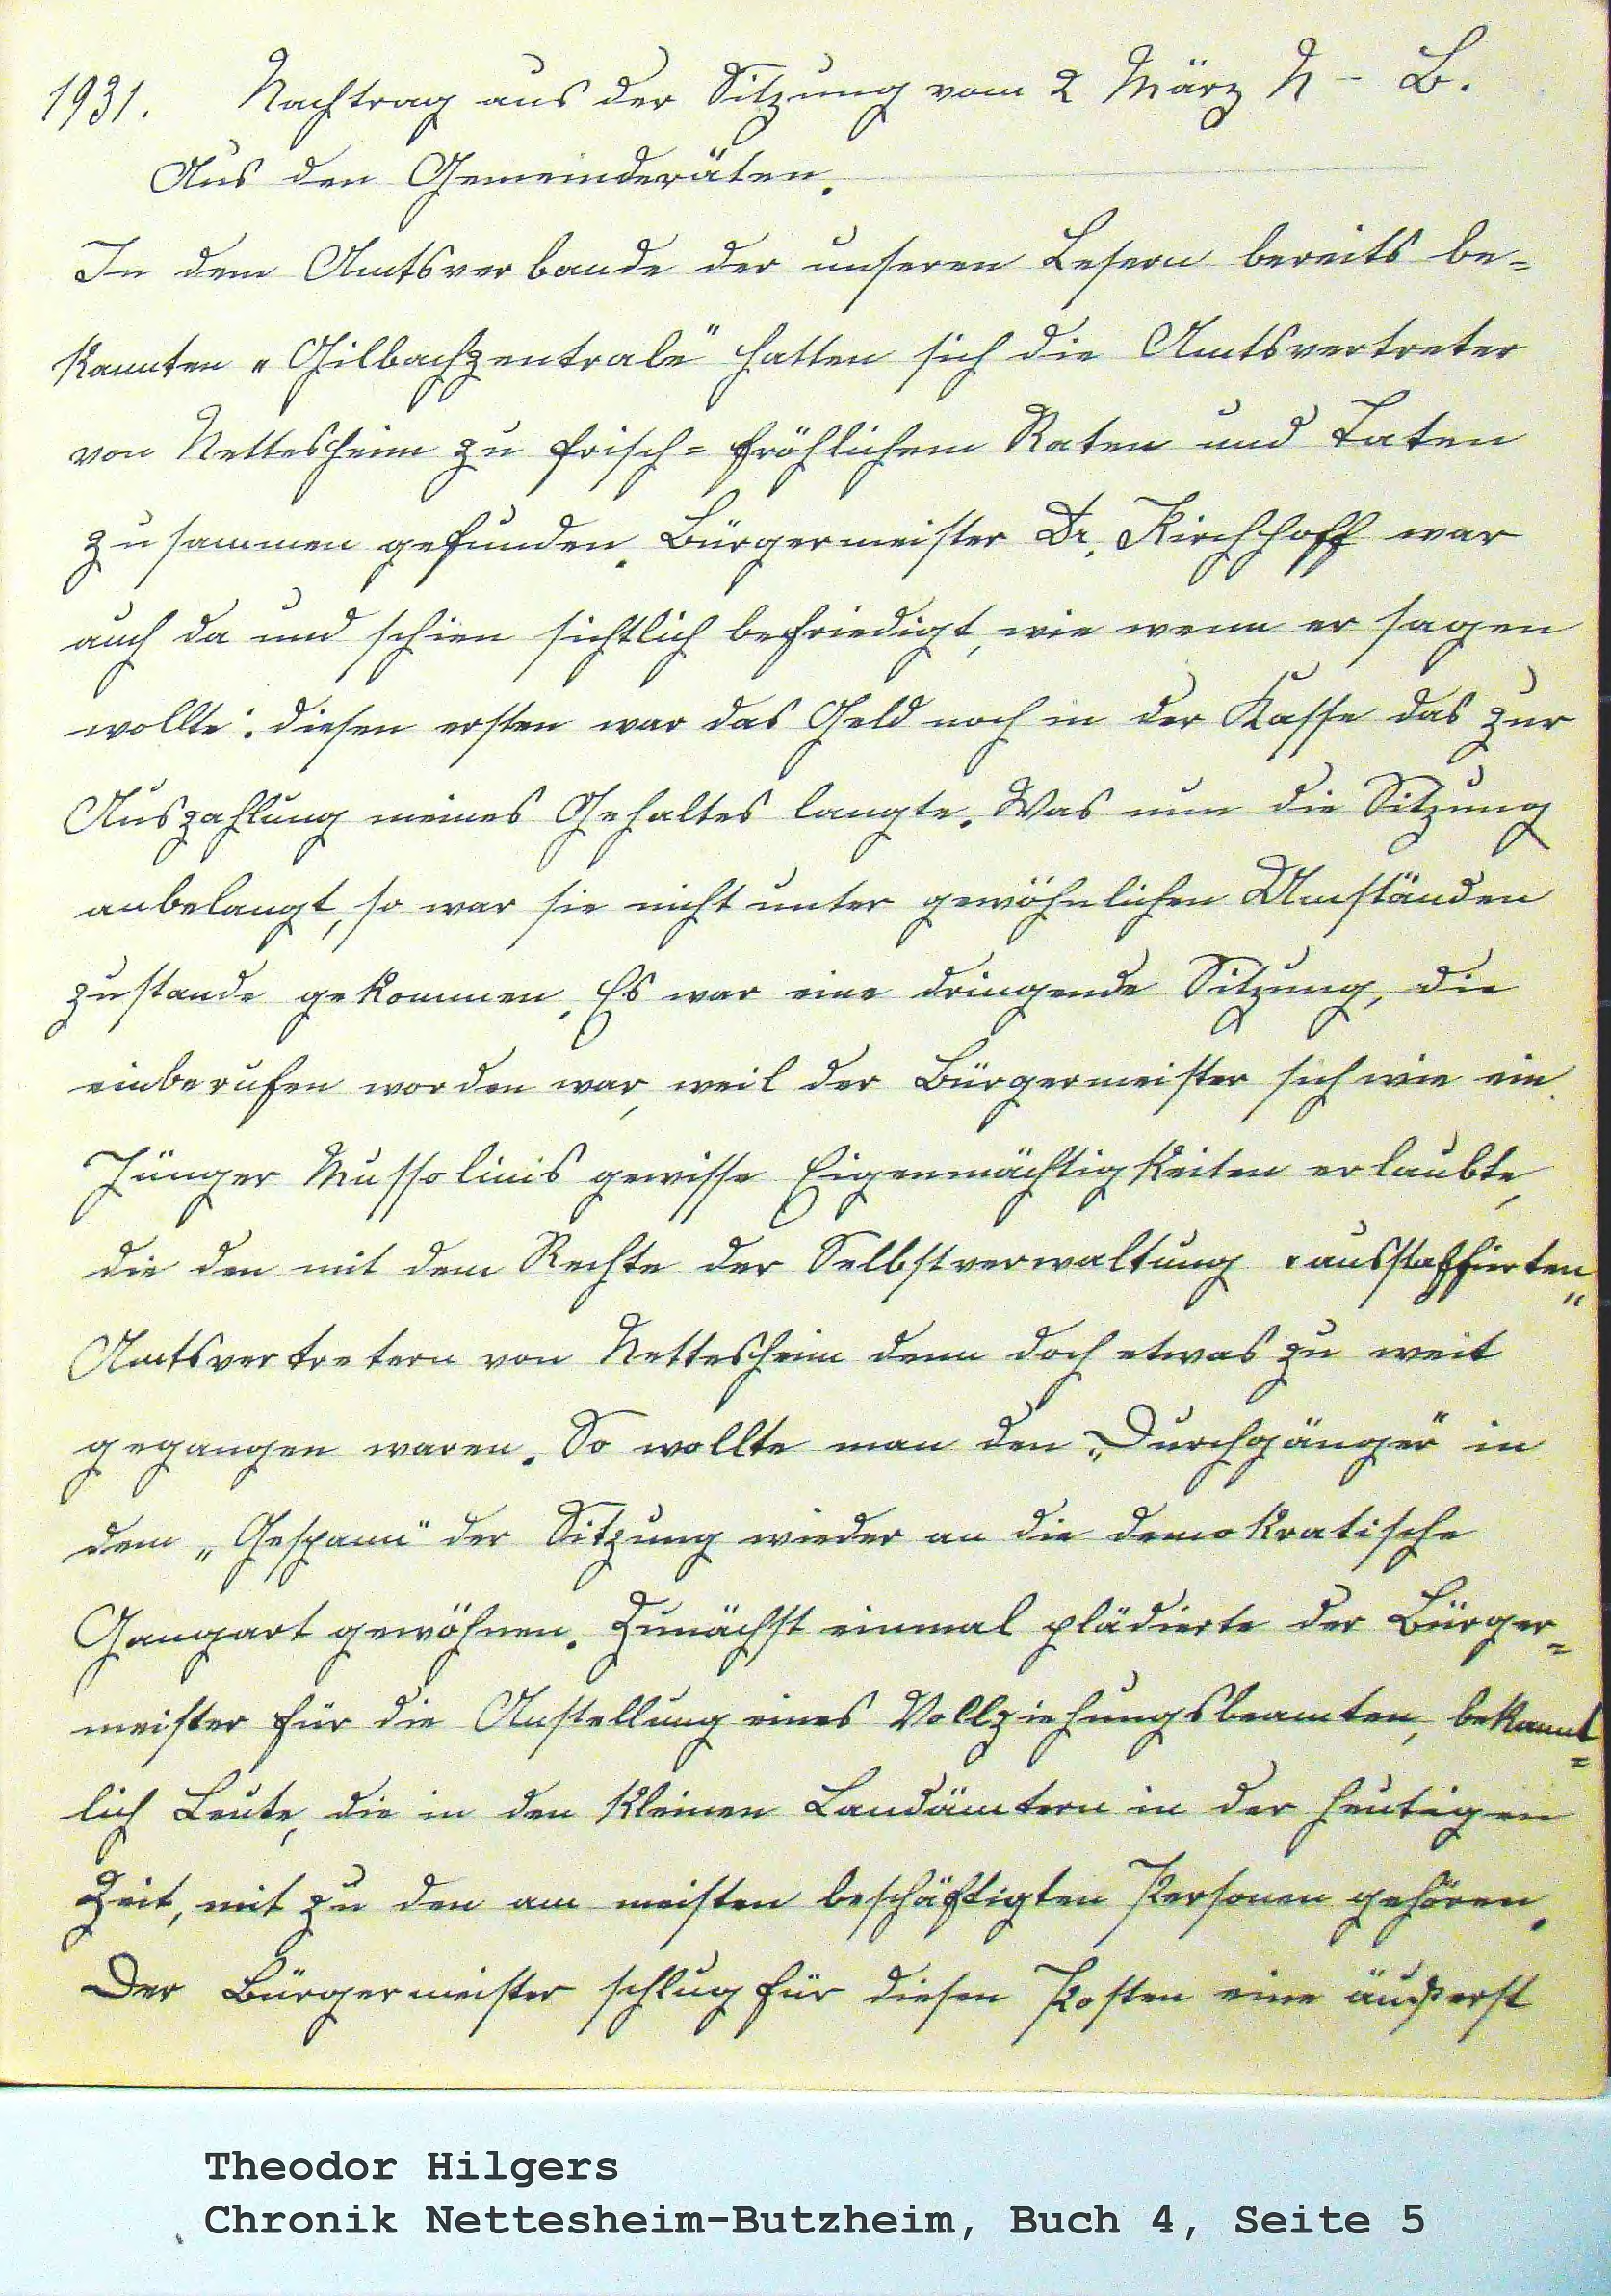 1931. Nachtrag aus der Sitzung vom 2 März N - B.
Aus den Gemeinderäten.
In dem Amtsverbande der unseren Lesern bereits be-
kannten „Gilbachzentrale" hatten sich die Amtsvertreter
von Nettesheim zu frisch-fröhlichem Raten und Taten
zusammen gefunden. Bürgermeister Dr. Kirchhoff war
auch da und schien sichtlich befriedigt, wie wenn er sagen
wollte: diesen ersten war das Geld noch in der Kasse das zur
Auszahlung meines Gehaltes langte. Was nun die Sitzung
anbelangt, so war sie nicht unter gewöhnlichen Umständen
zustande gekommen. Es war eine dringende Sitzung, die
einberufen worden war, weil der Bürgermeister sich wie ein
Jünger Mussolinis gewisse Eigenmächtigkeiten erlaubte,
die den mit dem Rechte der Selbstverwaltung „ausstaffierten"
Amtsvertretern von Nettesheim denn doch etwas zu weit
gegangen waren. So wollte man den „Durchgänger" in
dem „Gespann" der Sitzung wieder an die demokratische
Gangart gewöhnen. Zunächst einmal plädierte der Bürger-
meister für die Anstellung eines Vollziehungsbeamten, bekannt-
lich Leute, die in den kleinen Landämtern in der heutigen
Zeit, mit zu den am meisten beschäftigten Personen gehören.
Der Bürgermeister schlug für diesen Posten eine äußerst
Theodor Hilgers
Chronik Nettesheim-Butzheim, Buch 4, Seite 5